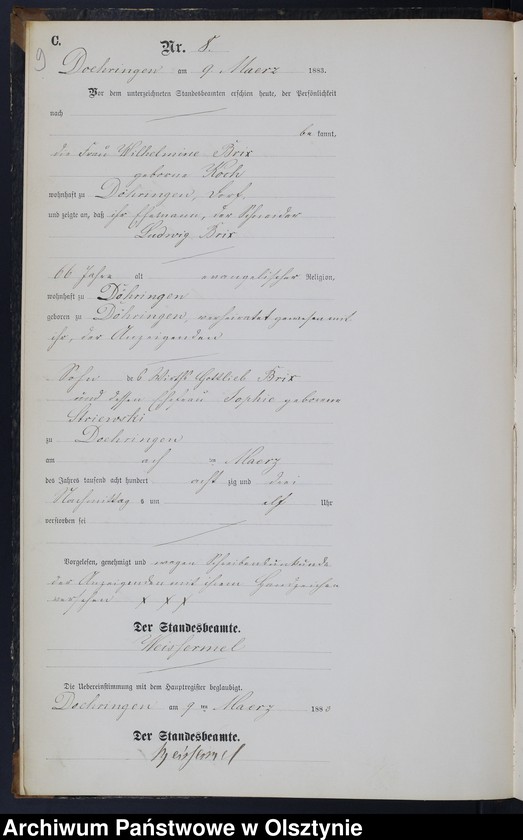 C.
Nr. 8.
9
Doehringen am 9 Maerz 1883.
Vor dem unterzeichneten Standesbeamten erschien heute, der Persönlichkeit
nach
be kannt,
die Frau Wilhelmine Brix
geborne Koch
wohnhaft zu Döhringen, Dorf.
und zeigte an, daß ihr Ehemann, der Schneider
Ludwig Brix
66 Jahre alt evangelischer Religion,
wohnhaft zu Döhringen
geboren zu Döhringen, verheiratet gewesen mit
ihr, der Anzeigenden
Sohn des Wirths Gottlieb Brix
und dessen Ehefrau Sophie geborene
zu Doehringen
am acht ten Maerz
des Jahres tausend acht hundert acht zig und drei
Nachmittag s um elf Uhr
verstorben sei
Vorgelesen, genehmigt und wegen Schreibensunkunde
der Anzeigenden mit ihrem Handzeichen
versehen x x x
Der Standesbeamte.
Weissermel
Die Uebereinstimmung mit dem Hauptregister beglaubigt.
Doehringen am 9 ten Maerz 1883
Der Standesbeamte.
Weissermel
Archiwum Państwowe w Olsztynie